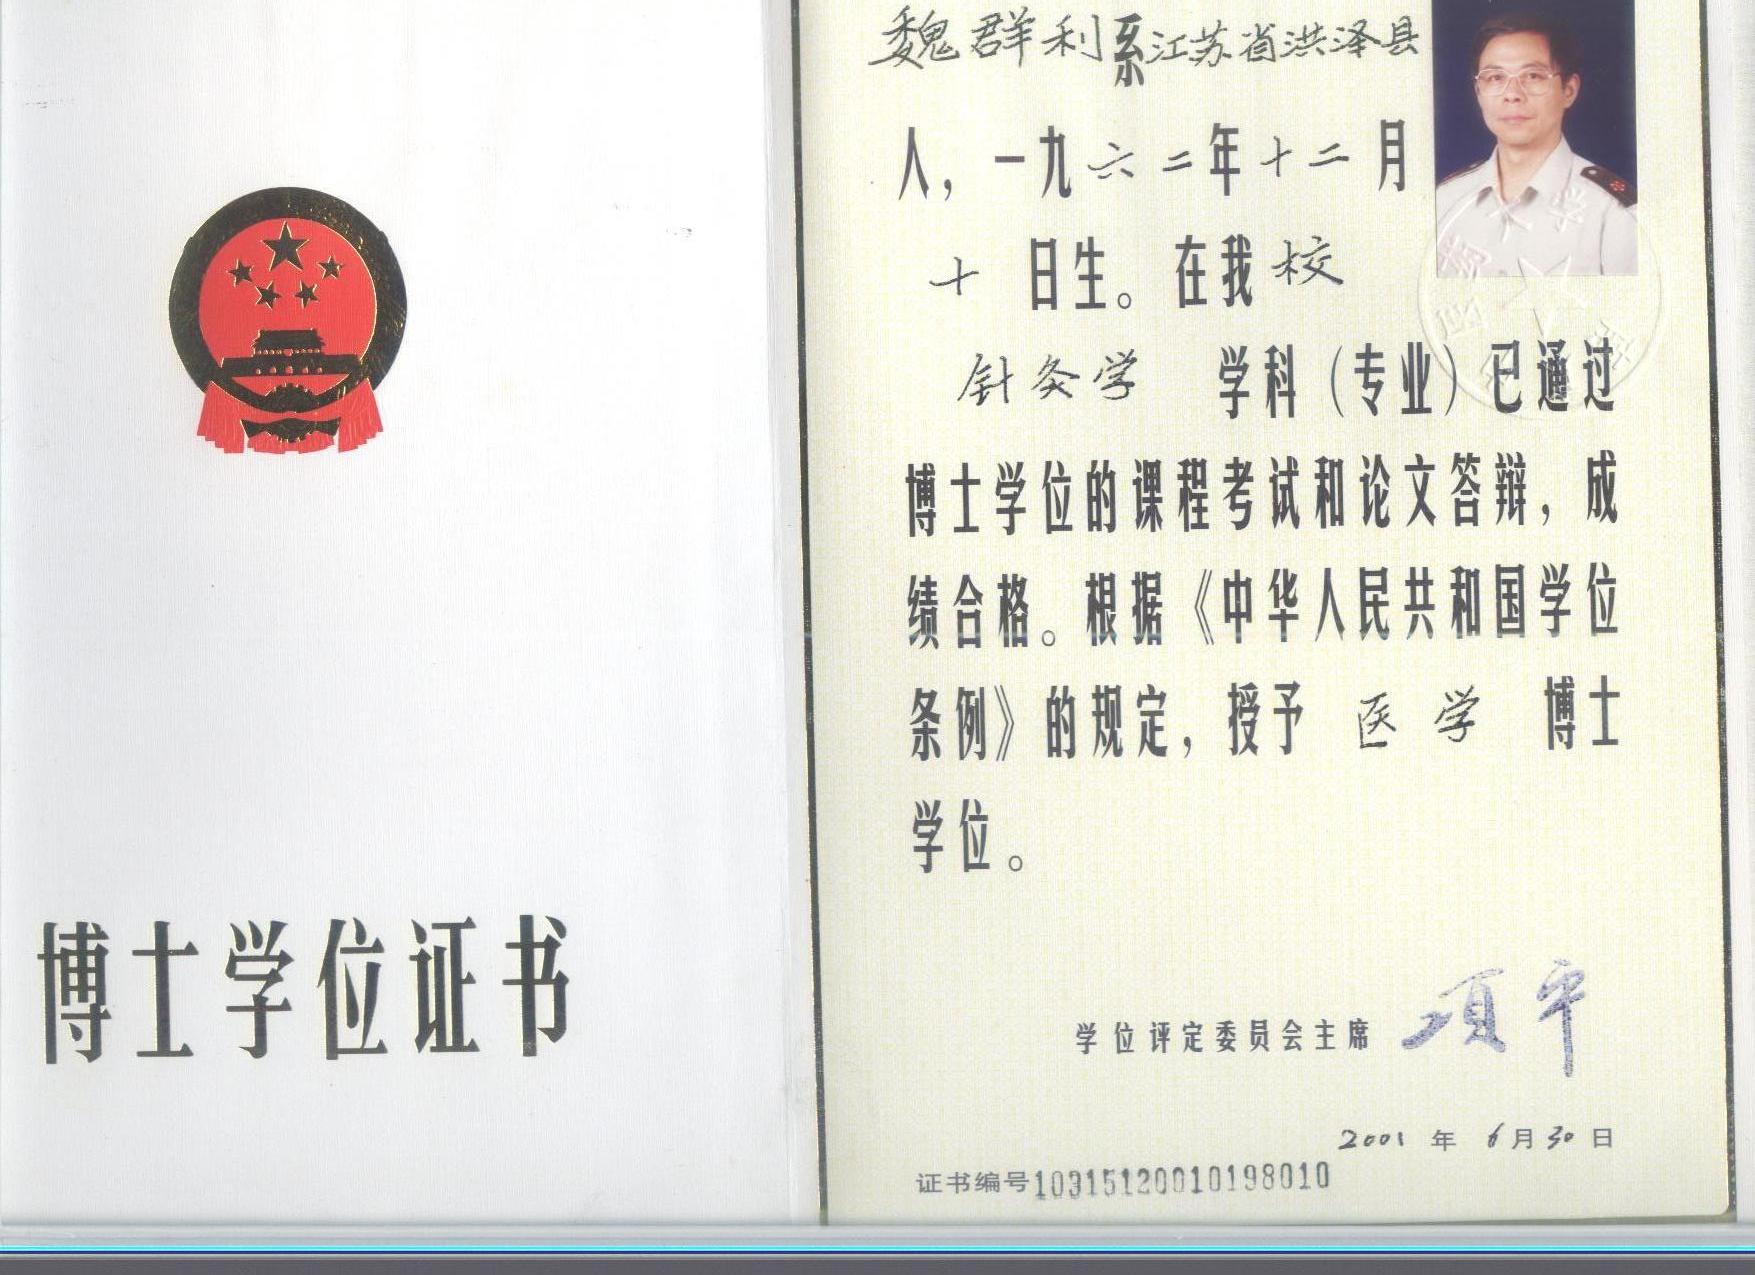 博士学位证书
魏群利系江苏省洪泽县
人，一九六二年十二月
十日生。在我校
针灸学 学科（专业）已通过
博士学位的课程考试和论文答辩，成
绩合格。根据《中华人民共和国学位
条例》的规定，授予 医学 博士
学位。
学位评定委员会主席 项平
2001 年 6月30日
证书编号10315120010198010